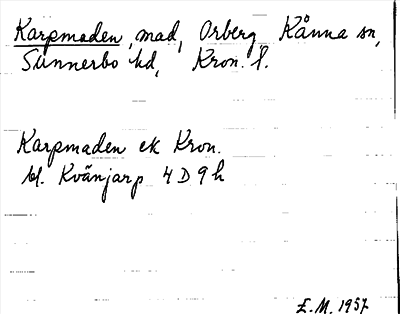 Karpmaden, mad, Orberg, Kånna sn,
Sunnerbo hd, Kron. l.
Karpmaden ek Kron.
bl. Kvänjarp 4 D 9 h
E.M. 1957